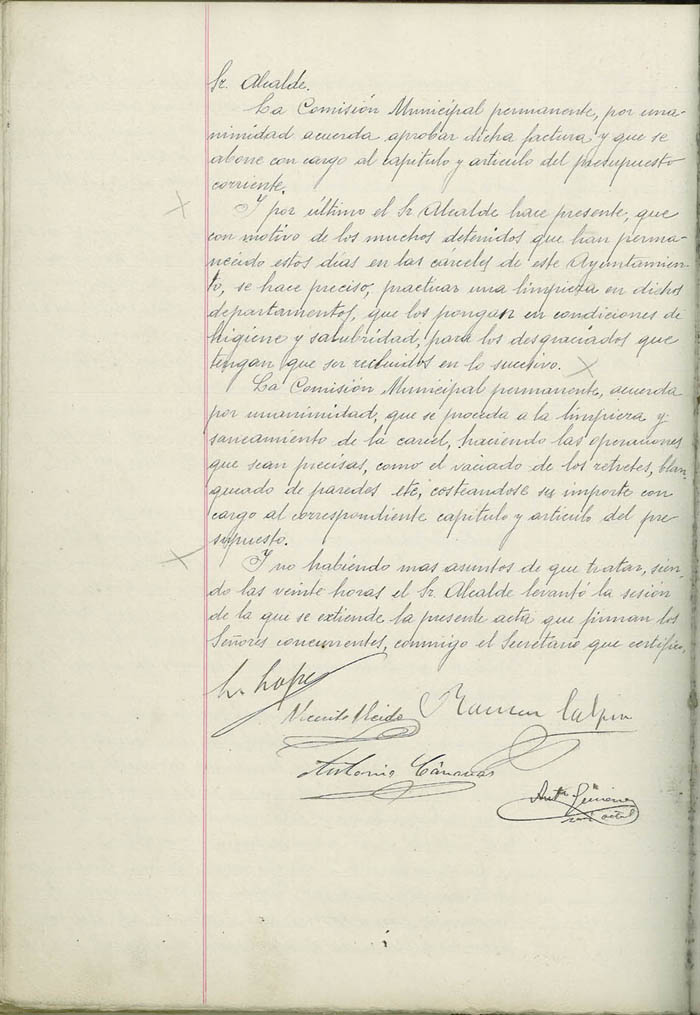 Sr. Alcalde.
La Comisión Municipal permanente, por una-
nimidad acuerda aprobar dicha factura y que se
abone con cargo al capitulo y articulo del presupuesto
corriente.
Y por último el Sr Alcalde hace presente, que
con motivo de los muchos detenidos que han perma-
necido estos días en las cárceles de este Ayuntamien-
to, se hace preciso, practicar una limpieza en dichos
departamentos, que los pongan en condiciones de
higiene y salubridad, para los desgraciados que
tengan que ser recluidos en lo sucesivo.
La Comisión Municipal permanente, acuerda
por unanimidad, que se proceda a la limpieza y
saneamiento de la carcel, haciendo las operaciones
que sean precisas, como el vaciado de los retretes, blan-
queado de paredes etc, costeandose su importe con
cargo al correspondiente capitulo y articulo del pre
supuesto.
Y no habiendo mas asuntos de que tratar, sien-
do las veinte horas el Sr. Alcalde levantó la sesión
de la que se extiende la presente acta que firman los
Señores concurrentes, conmigo el Secretario que certifico.
Lopez
Vicente
Ramon
Antonio Cánovas
Antº Gimenez